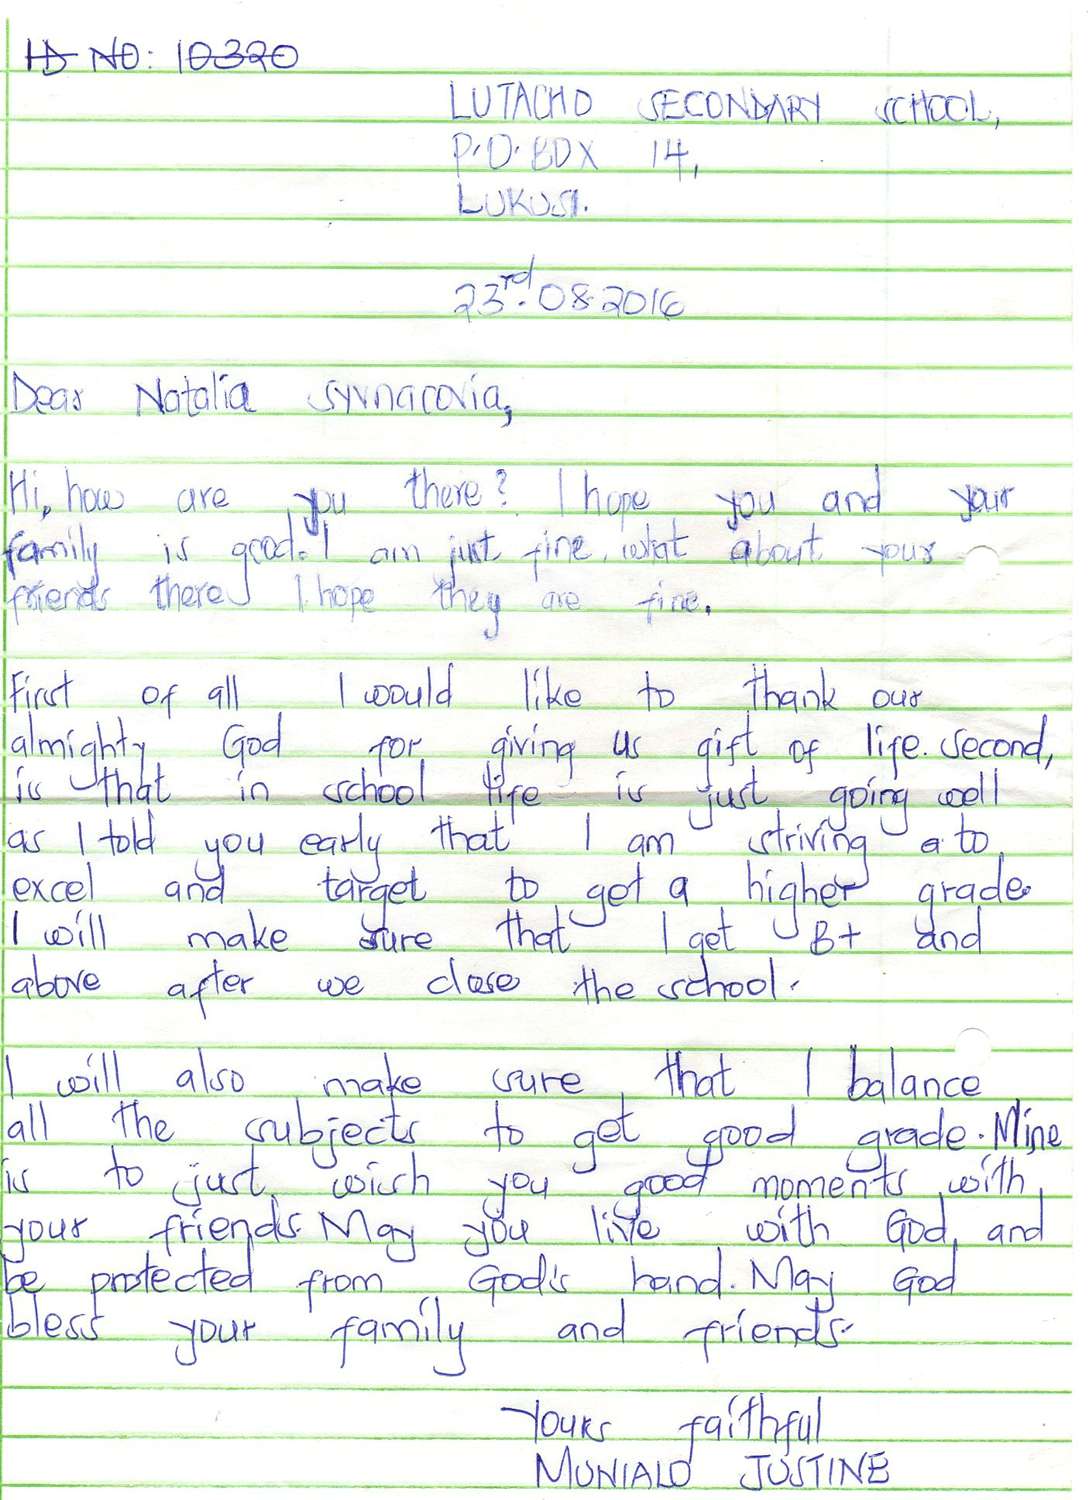 ID NO: 10320
LUTACHO SECONDARY SCHOOL,
P.O. BOX 14,
LUKUSI.
23rd.08.2016
Dear Natalia Syvnacovia,
Hi, how are you there? I hope you and your
family is good. I am just fine, what about your
friends there I hope they are fine.
First of all I would like to thank our
almighty God for giving us gift of life. Second,
is that in school life is just going well
as I told you early that I am striving a to
excel and target to get a higher grade.
I will make sure that I get B+ and
above after we close the school.
I will also make sure that I balance
all the subjects to get good grade. Mine
is to just wish you good moments with
your friends. May you live with God and
be protected from God's hand. May God
bless your family and friends.
Yours faithful
MUNIALO JUSTINE